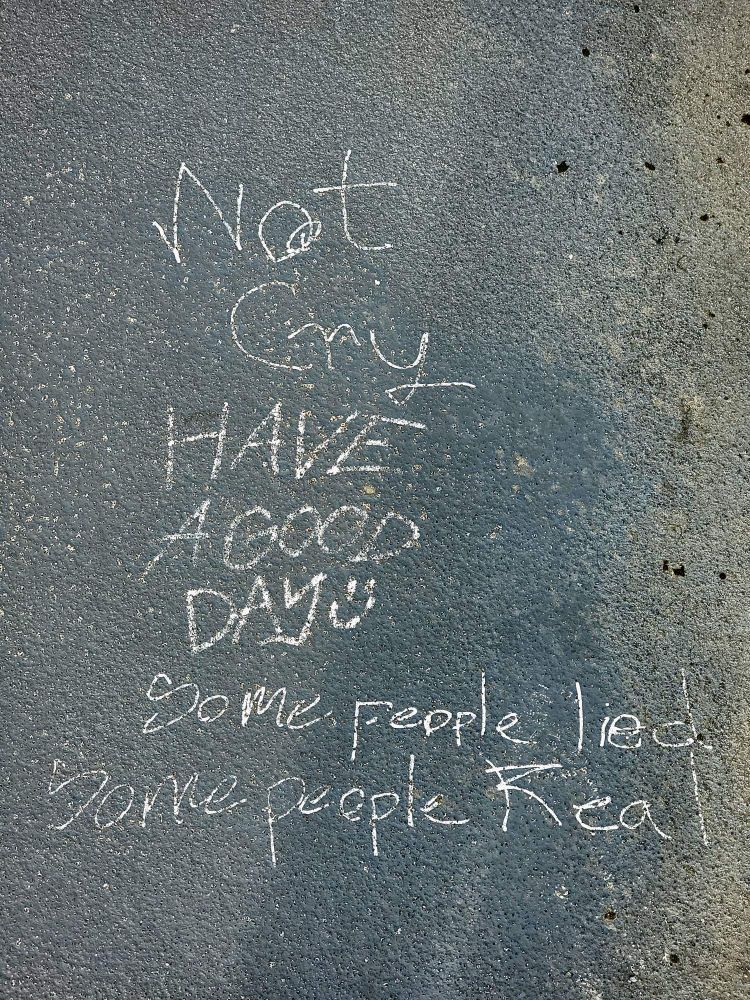 Not
Cry
HAVE
A GOOD
DAY
Some people lied
Some people Real